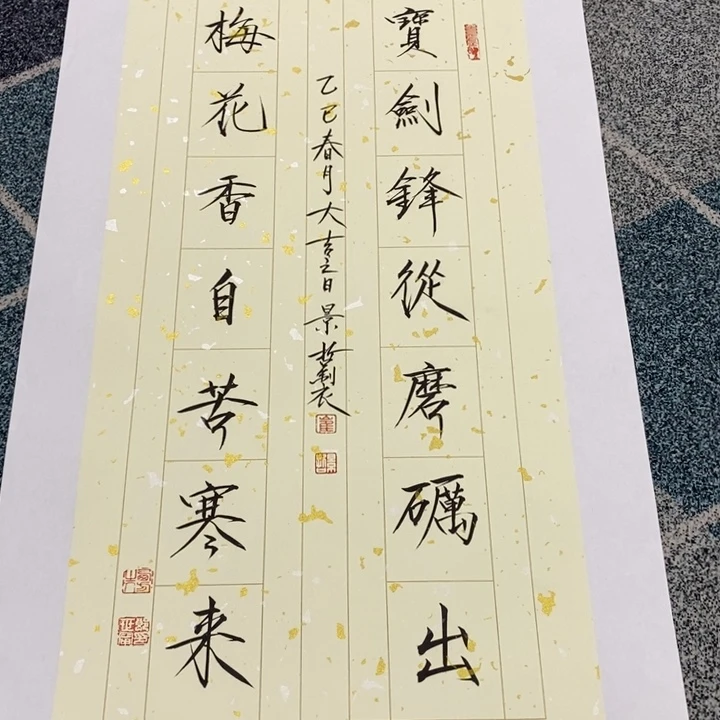 寶劍鋒從磨礪出
梅花香自苦寒来
乙巳春月大吉之日景哲製